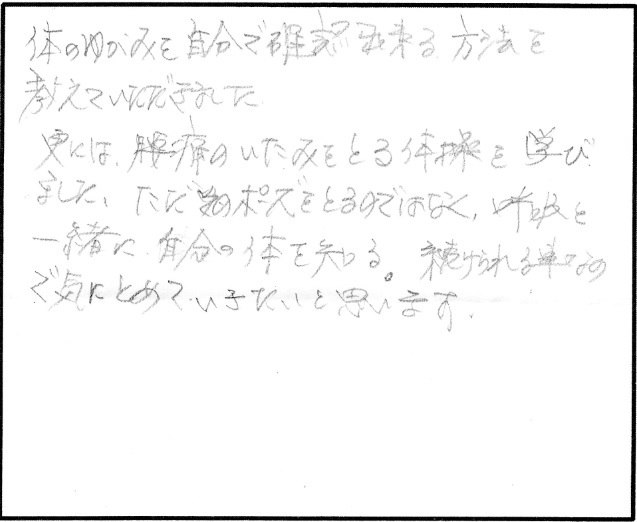 体のゆがみを自分で確認出来る方法を
教えていただきました
更には、腰痛のいたみをとる体操を学び
ました、ただポーズをとるのではなく、呼吸と
一緒に自分の体を知る。続けられる
で気にとめていきたいと思います。